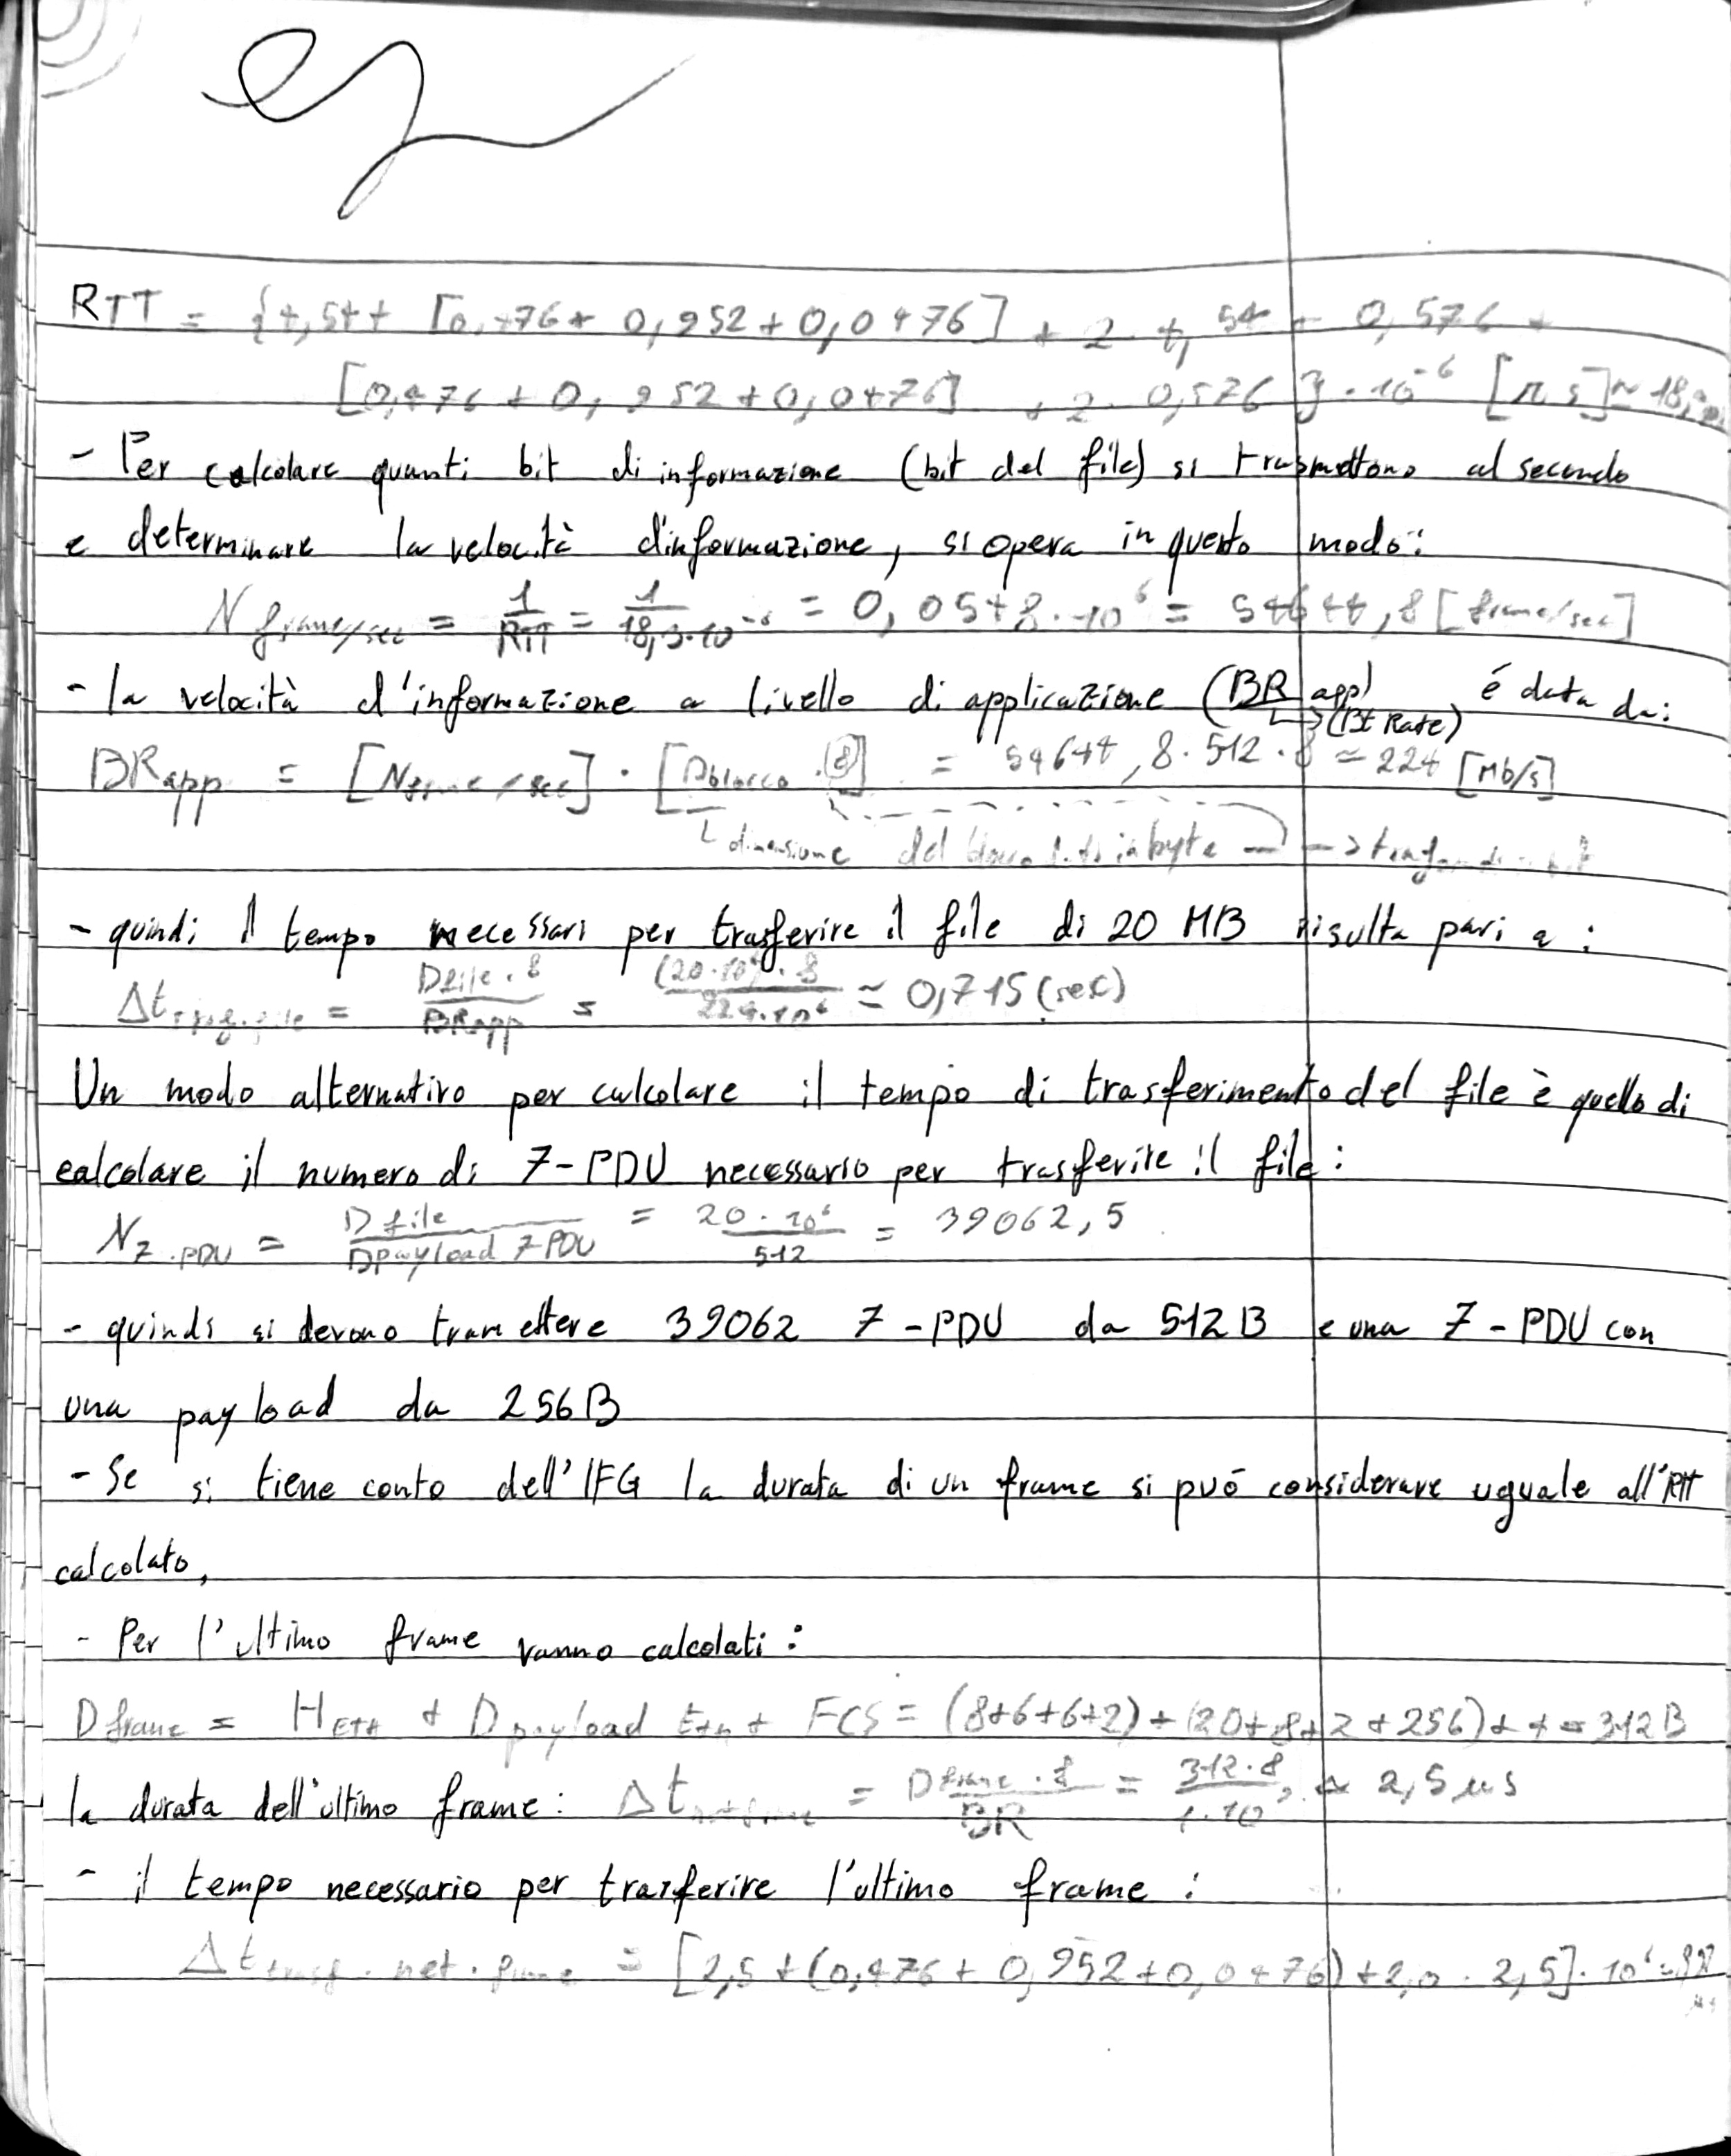 RTT = {4,54+ [0,476+ 0,952+0,0476] + 2 · 4,54 + 0,576 +
[0,476 + 0,952+0,0476] + 2 · 0,576 } · 10^-6 [μs] ≈ 18,
- Per calcolare quanti bit di informazione (bit del file) si trasmettono al secondo
e determinare la velocità d'informazione, si opera in questo modo:
N frame/sec = 1/RTT = 1/18,3·10^-6 = 0,0548·10^6 = 54644,8 [frame/sec]
- la velocità d'informazione a livello di applicazione (BR app) é data da:
↳(Bt Rate)
BRapp = [Nframe/sec] · [Dblocco · 8] = 54644,8 · 512 · 8 ≈ 224 [Mb/s]
dimensione del in byte
- quindi il tempo necessari per trasferire il file di 20 MB risulta pari a:
Δt = Dfile · 8 / BRapp = (20·10^6)·8 / 224·10^6 ≈ 0,715 (sec)
Un modo alternativo per calcolare il tempo di trasferimento del file è quello di
calcolare il numero di 7-PDU necessario per trasferire il file:
N7-PDU = Dfile / Dpayload 7PDU = 20·10^6 / 512 = 39062,5
- quindi si devono tramettere 39062 7-PDU da 512B e una 7-PDU con
una payload da 256B
- Se si tiene conto dell'IFG la durata di un frame si può considerare uguale all'RTT
calcolato,
- Per l'ultimo frame vanno calcolati:
Dframe = HETH + Dpayload Eth + FCS = (8+6+6+2) + (20+8+2+256) + 4 = 312B
la durata dell'ultimo frame: Δt = Dframe · 8 / BR = 312·8 / 1·10^9 ≈ 2,5 μs
- il tempo necessario per trasferire l'ultimo frame:
Δt = [2,5 + (0,476 + 0,952+0,0476) + 2,0 · 2,5] · 10^6